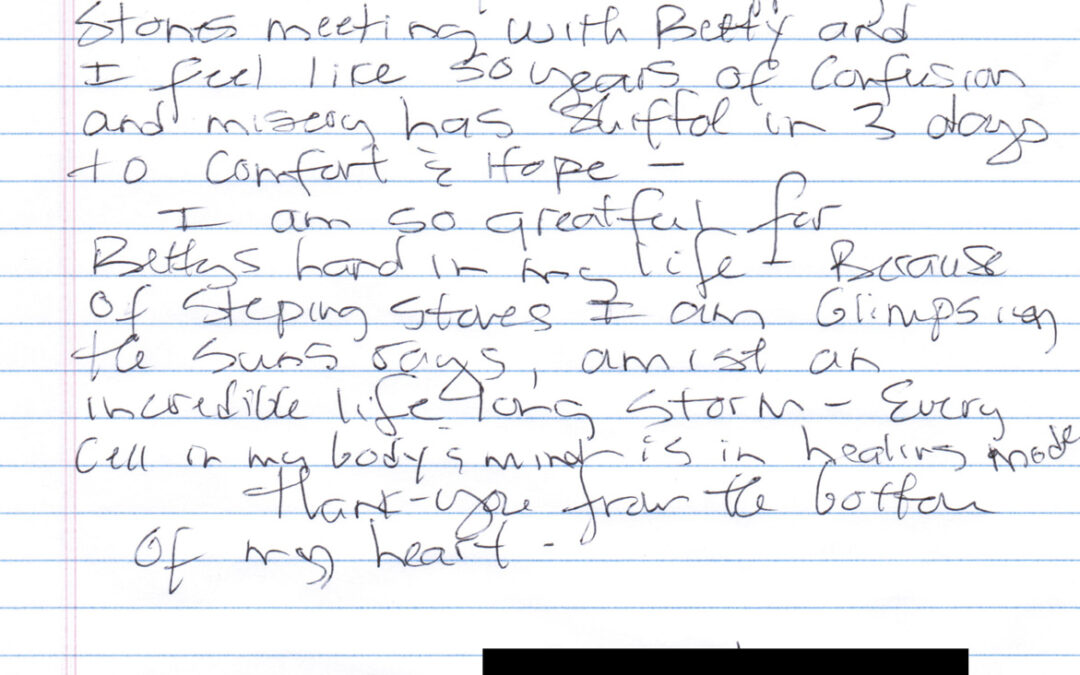 Stones meeting with Betty and
I feel like 50 years of Confusion
and misery has Shiftd in 3 days
to Comfort & Hope -
I am so greatful for
Bettys hand in my life - Because
Of Steping Stones I am Glimpsing
the Suns rays, amist an
incredible life long storm - Every
Cell in my body & mind is in healing mode
Thank-you from the bottom
Of my heart -